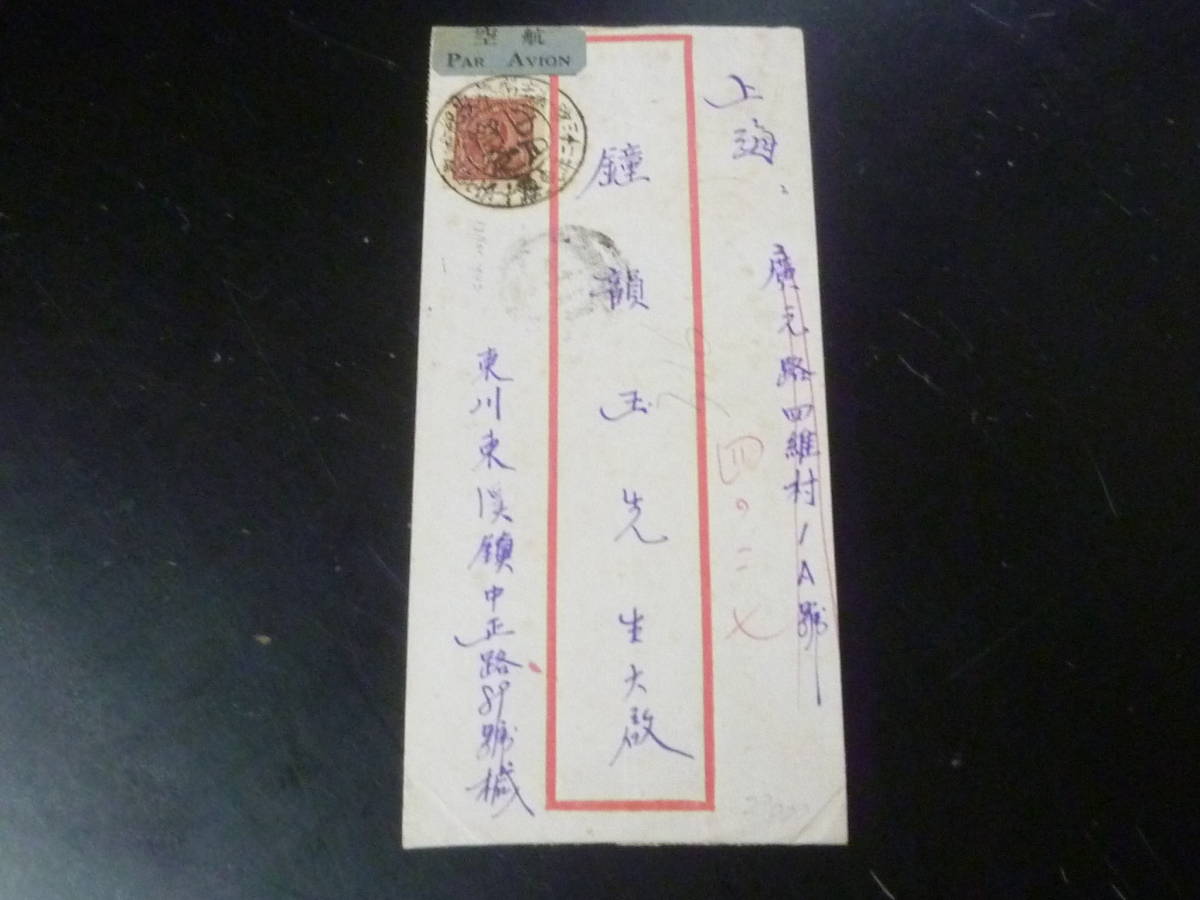 上海、
廣元路四維村1A號
鐘韻玉先生大啟
東川東溪鎮中正路89號槭
四〇二七
空航
PAR AVION